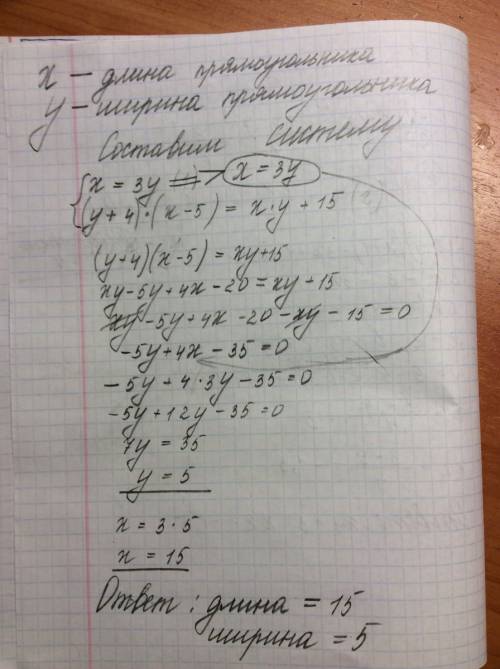 x – длина прямоугольника
y – ширина прямоугольника
Составим систему
{ x = 3y ⟹ x = 3y
(y+4)·(x-5) = x·y + 15
(y+4)(x-5) = xy+15
xy-5y+4x-20 = xy+15
xy-5y+4x-20-xy-15=0
-5y+4x-35=0
-5y+4·3y-35=0
-5y+12y-35=0
7y = 35
y = 5
x = 3·5
x = 15
Ответ: длина = 15
ширина = 5